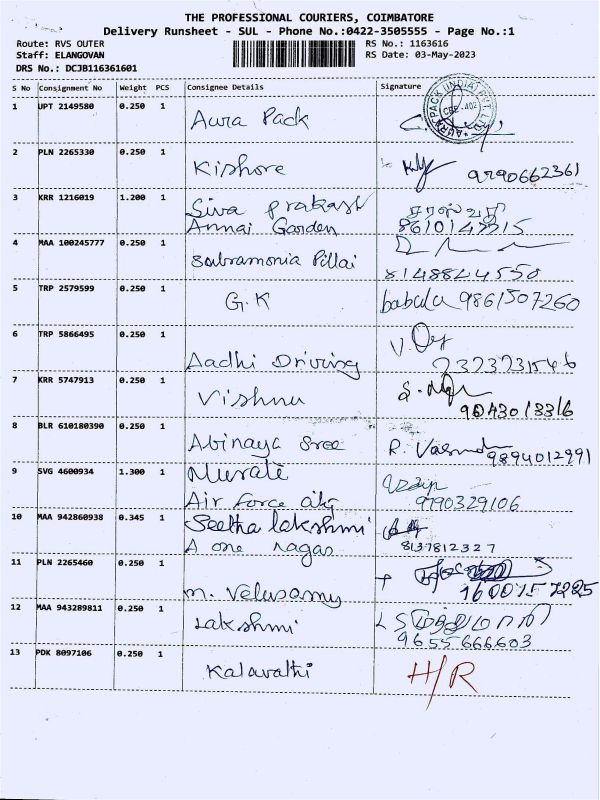 THE PROFESSIONAL COURIERS, COIMBATORE
Delivery Runsheet - SUL - Phone No.:0422-3505555 - Page No.:1
Route: RVS OUTER
RS No.: 1163616
Staff: ELANGOVAN
RS Date: 03-May-2023
DRS No.: DCJB116361601
S No Consignment No Weight PCS Consignee Details Signature
1 UPT 2149580 0.250 1 Aura Pack
2 PLN 2265330 0.250 1 Kishore 9790662361
3 KRR 1216019 1.200 1 Siva prakash
Annai Garden
4 MAA 100245777 0.250 1 Subramonia Pillai
8148824550
5 TRP 2579599 0.250 1 G.K 9861507260
6 TRP 5866495 0.250 1 Aadhi Driving
7 KRR 5747913 0.250 1 Vishnu
9043013316
8 BLR 610180390 0.250 1 Abinaya Sree
9894012991
9 SVG 4600934 1.300 1 Murali
Air force city 9790329106
10 MAA 942860938 0.345 1 Seetha lakshmi
A one nagar 8137812327
11 PLN 2265460 0.250 1 M. Velusamy
12 MAA 943289811 0.250 1 Lakshmi
9655666603
13 PDK 8097106 0.250 1 Kalavathi H/R